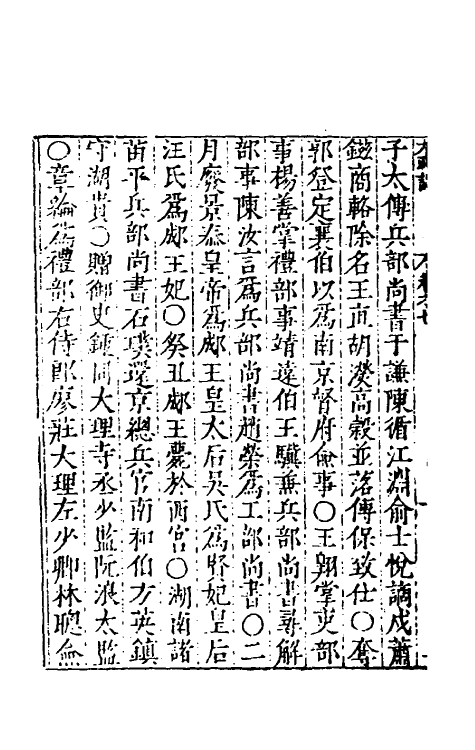 子太傅兵部尚書于謙陳循江淵俞士悅謫戍蕭
鎡商輅除名王直胡濙高穀並落傅保致仕○奪
郭登定襄伯以爲南京督府僉事○王翺掌吏部
事楊善掌禮部事靖遠伯王驥兼兵部尚書尋解
部事陳汝言爲兵部尚書趙榮爲工部尚書○二
月廢景泰皇帝爲郕王皇太后吳氏爲賢妃皇后
汪氏爲郕王妃○癸丑郕王薨於西宮○湖南諸
苗平兵部尚書石璞還京總兵官南和伯方英鎮
守湖貴○贈御史鍾同大理寺丞少監阮浪太監
○章綸爲禮部右侍郎廖莊大理左少卿林聰僉